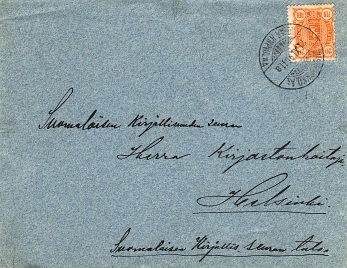 Suomalaisen Kirjallisuuden seuran
Herra Kirjastonhoitaja
Helsinki.
Suomalaisen Kirjallis. seuran talo.